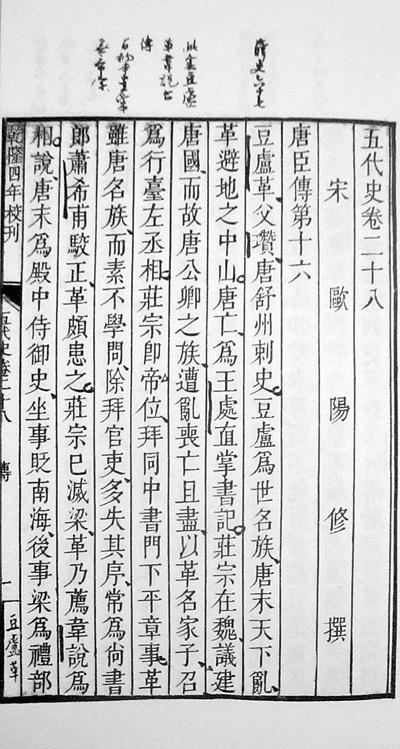 五代史卷二十八
宋歐陽修撰
唐臣傳第十六
豆盧革父瓚唐舒州刺史豆盧爲世名族唐末天下亂
革避地之中山唐亡爲王處直掌書記莊宗在魏議建
唐國而故唐公卿之族遭亂喪亡且盡以革名家子召
爲行臺左丞相莊宗卽帝位拜同中書門下平章事革
雖唐名族而素不學問除拜官吏多失其序常爲尚書
郎蕭希甫駮正革頗患之莊宗已滅梁革乃薦韋說爲
相說唐末爲殿中侍御史坐事貶南海後事梁爲禮部
乾隆四年校刊
五代史卷二十八 傳
一
豆盧革